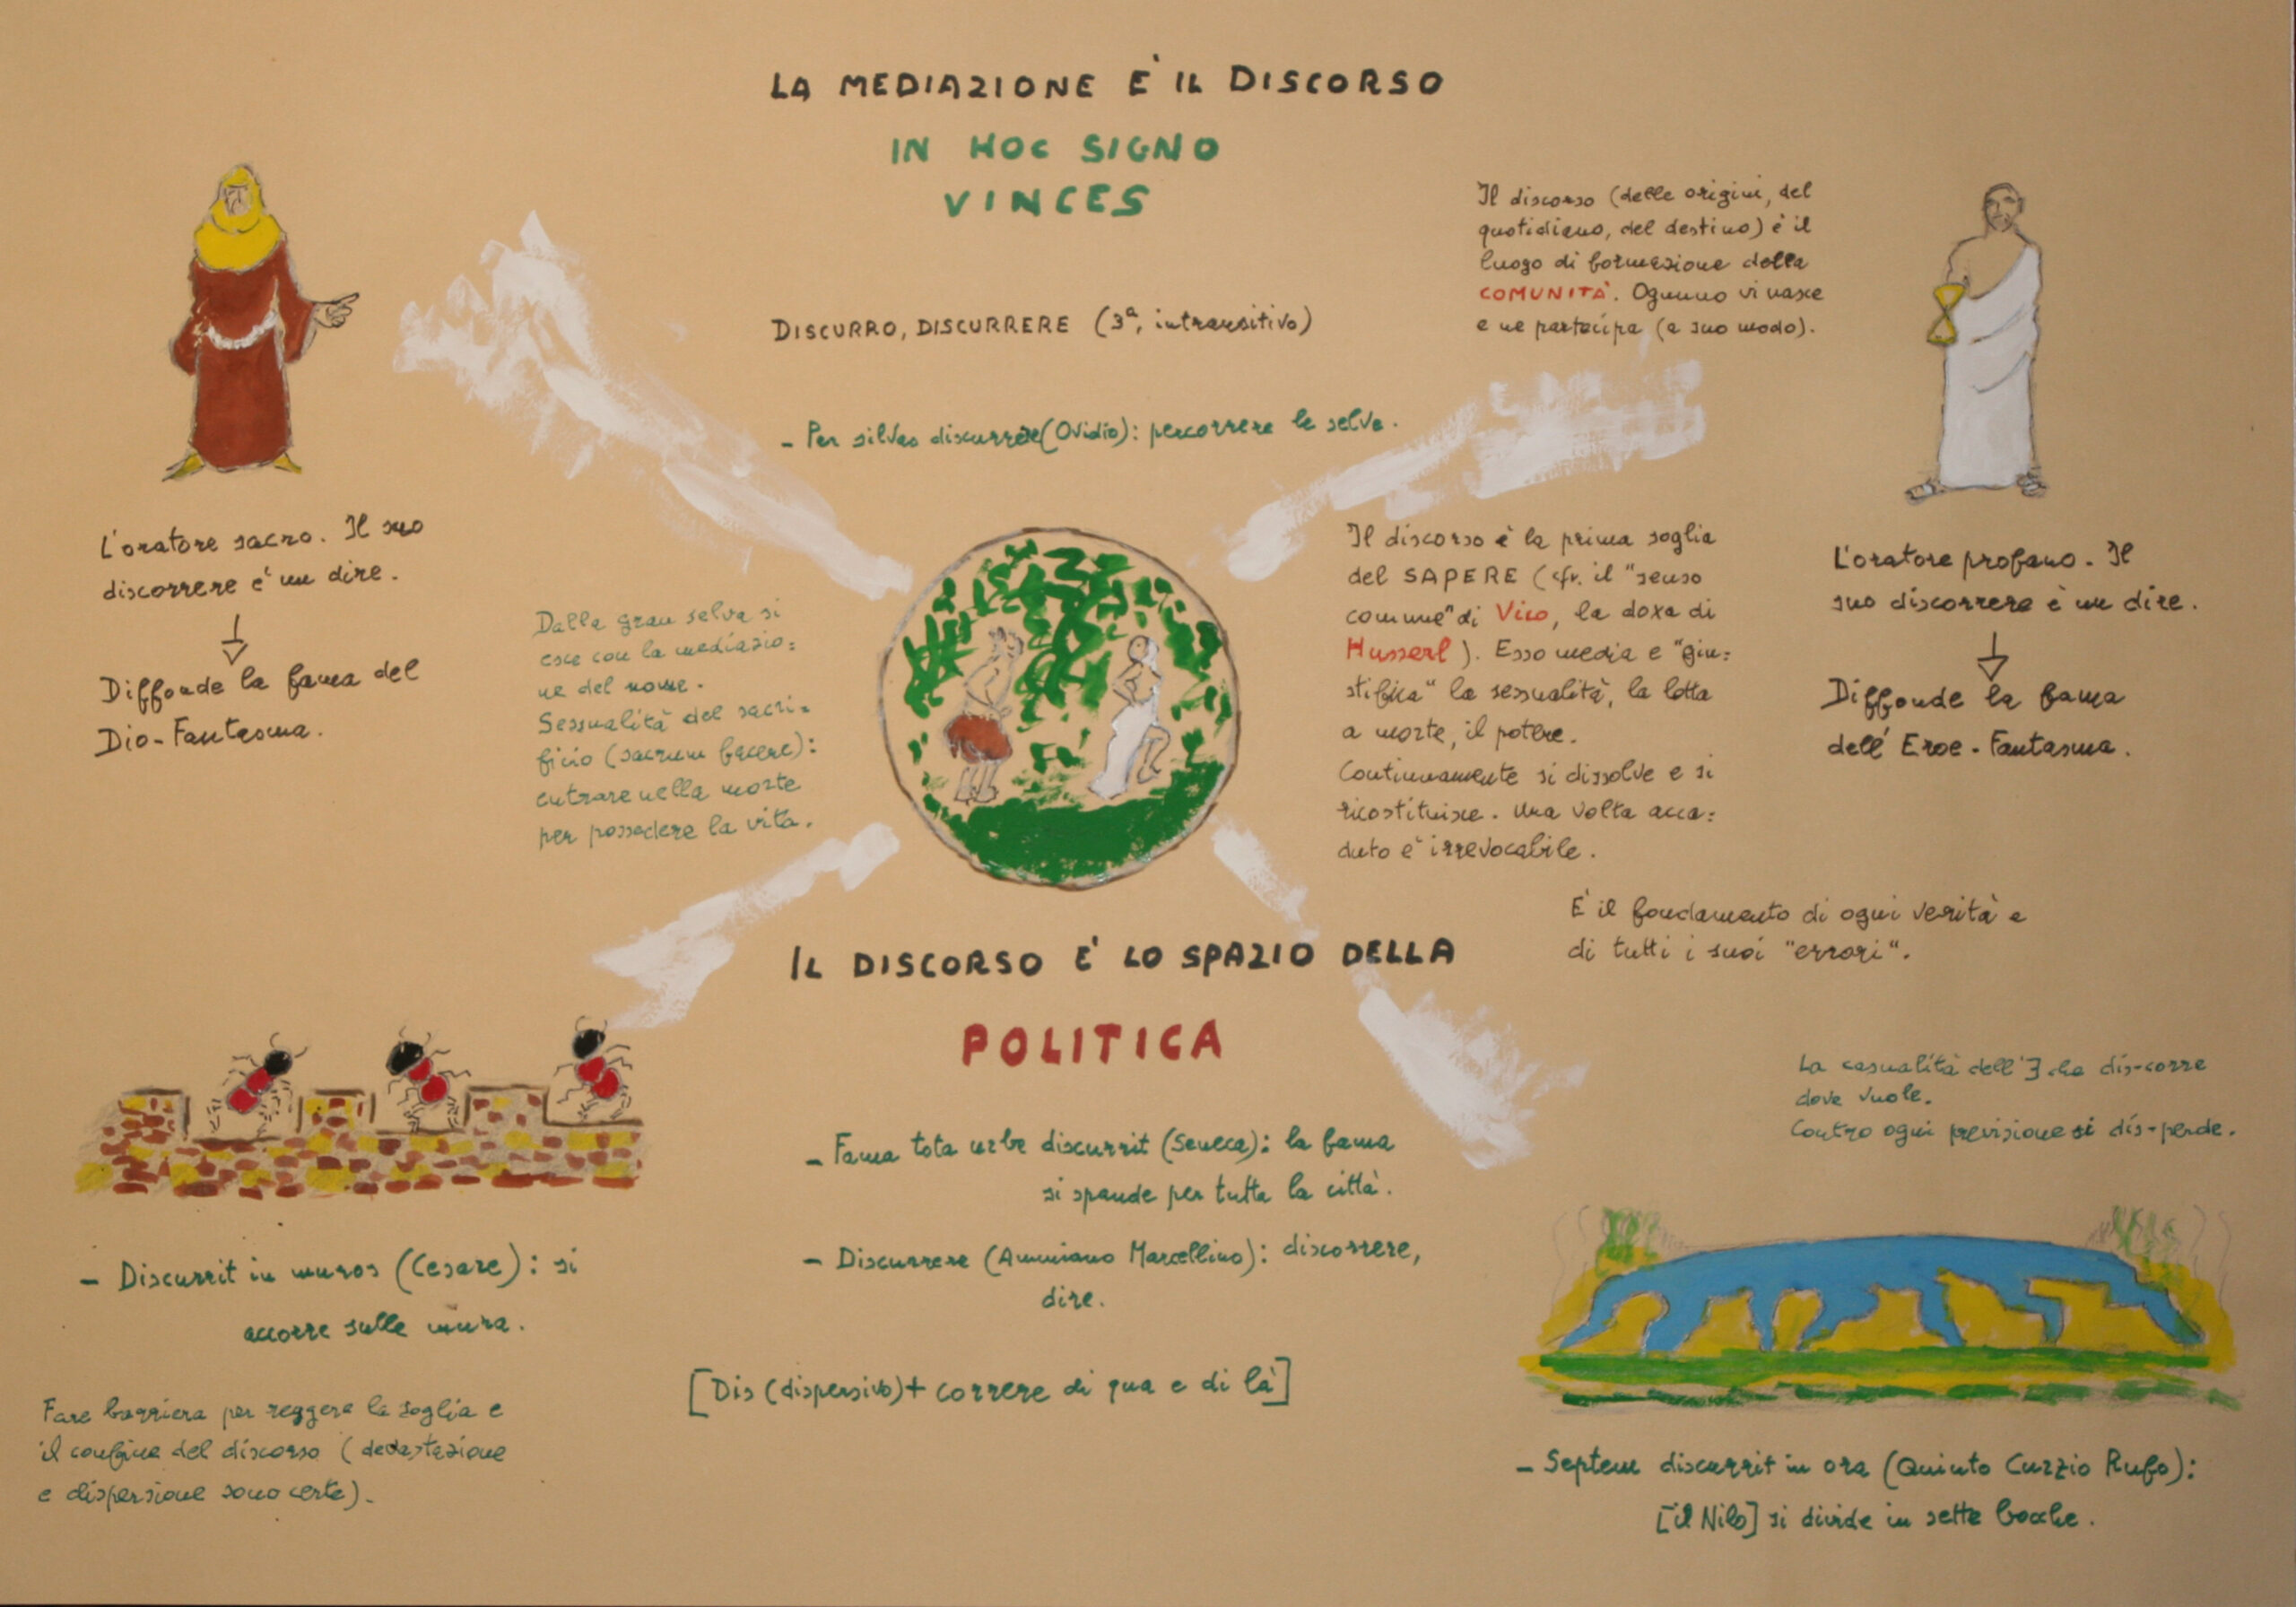 LA MEDIAZIONE E' IL DISCORSO
IN HOC SIGNO
VINCES
Il discorso (delle origini, del
quotidiano, del destino) è il
luogo di formazione della
COMUNITÀ. Ognuno vi nasce
e ne partecipa (a suo modo).
DISCURRO, DISCURRERE (3ª, intransitivo)
- Per silvas discurrere (Ovidio): percorrere le selve.
L'oratore sacro. Il suo
discorrere e' un dire.
Diffonde la fama del
Dio-Fantasma.
Dalla gran selva si
esce con la mediazio=
ne del nome.
Sessualità del sacri=
ficio (sacrum facere):
entrare nella morte
per possedere la vita.
Il discorso è la prima soglia
del SAPERE (cfr. il "senso
comune" di Vico, la doxa di
Husserl). Esso media e "giu=
stifica" la sessualità, la lotta
a morte, il potere.
Continuamente si dissolve e si
ricostituisce. Una volta acca=
duto e' irrevocabile.
L'oratore profano. Il
suo discorrere è un dire.
Diffonde la fama
dell'Eroe-Fantasma.
E' il fondamento di ogni verità e
di tutti i suoi "errori".
IL DISCORSO E' LO SPAZIO DELLA
POLITICA
La casualità dell'∃ che dis-corre
dove vuole.
Contro ogni previsione si dis-perde.
- Fama tota urbe discurrit (Seneca): la fama
si spande per tutta la città.
- Discurrere (Ammiano Marcellino): discorrere,
dire.
[Dis (dispersivo) + correre di qua e di là]
- Discurrit in muros (Cesare): si
accorre sulle mura.
Fare barriera per reggere la soglia e
il confine del discorso (devastazione
e dispersione sono certe).
- Septem discurrit in ora (Quinto Curzio Rufo):
[il Nilo] si divide in sette bocche.